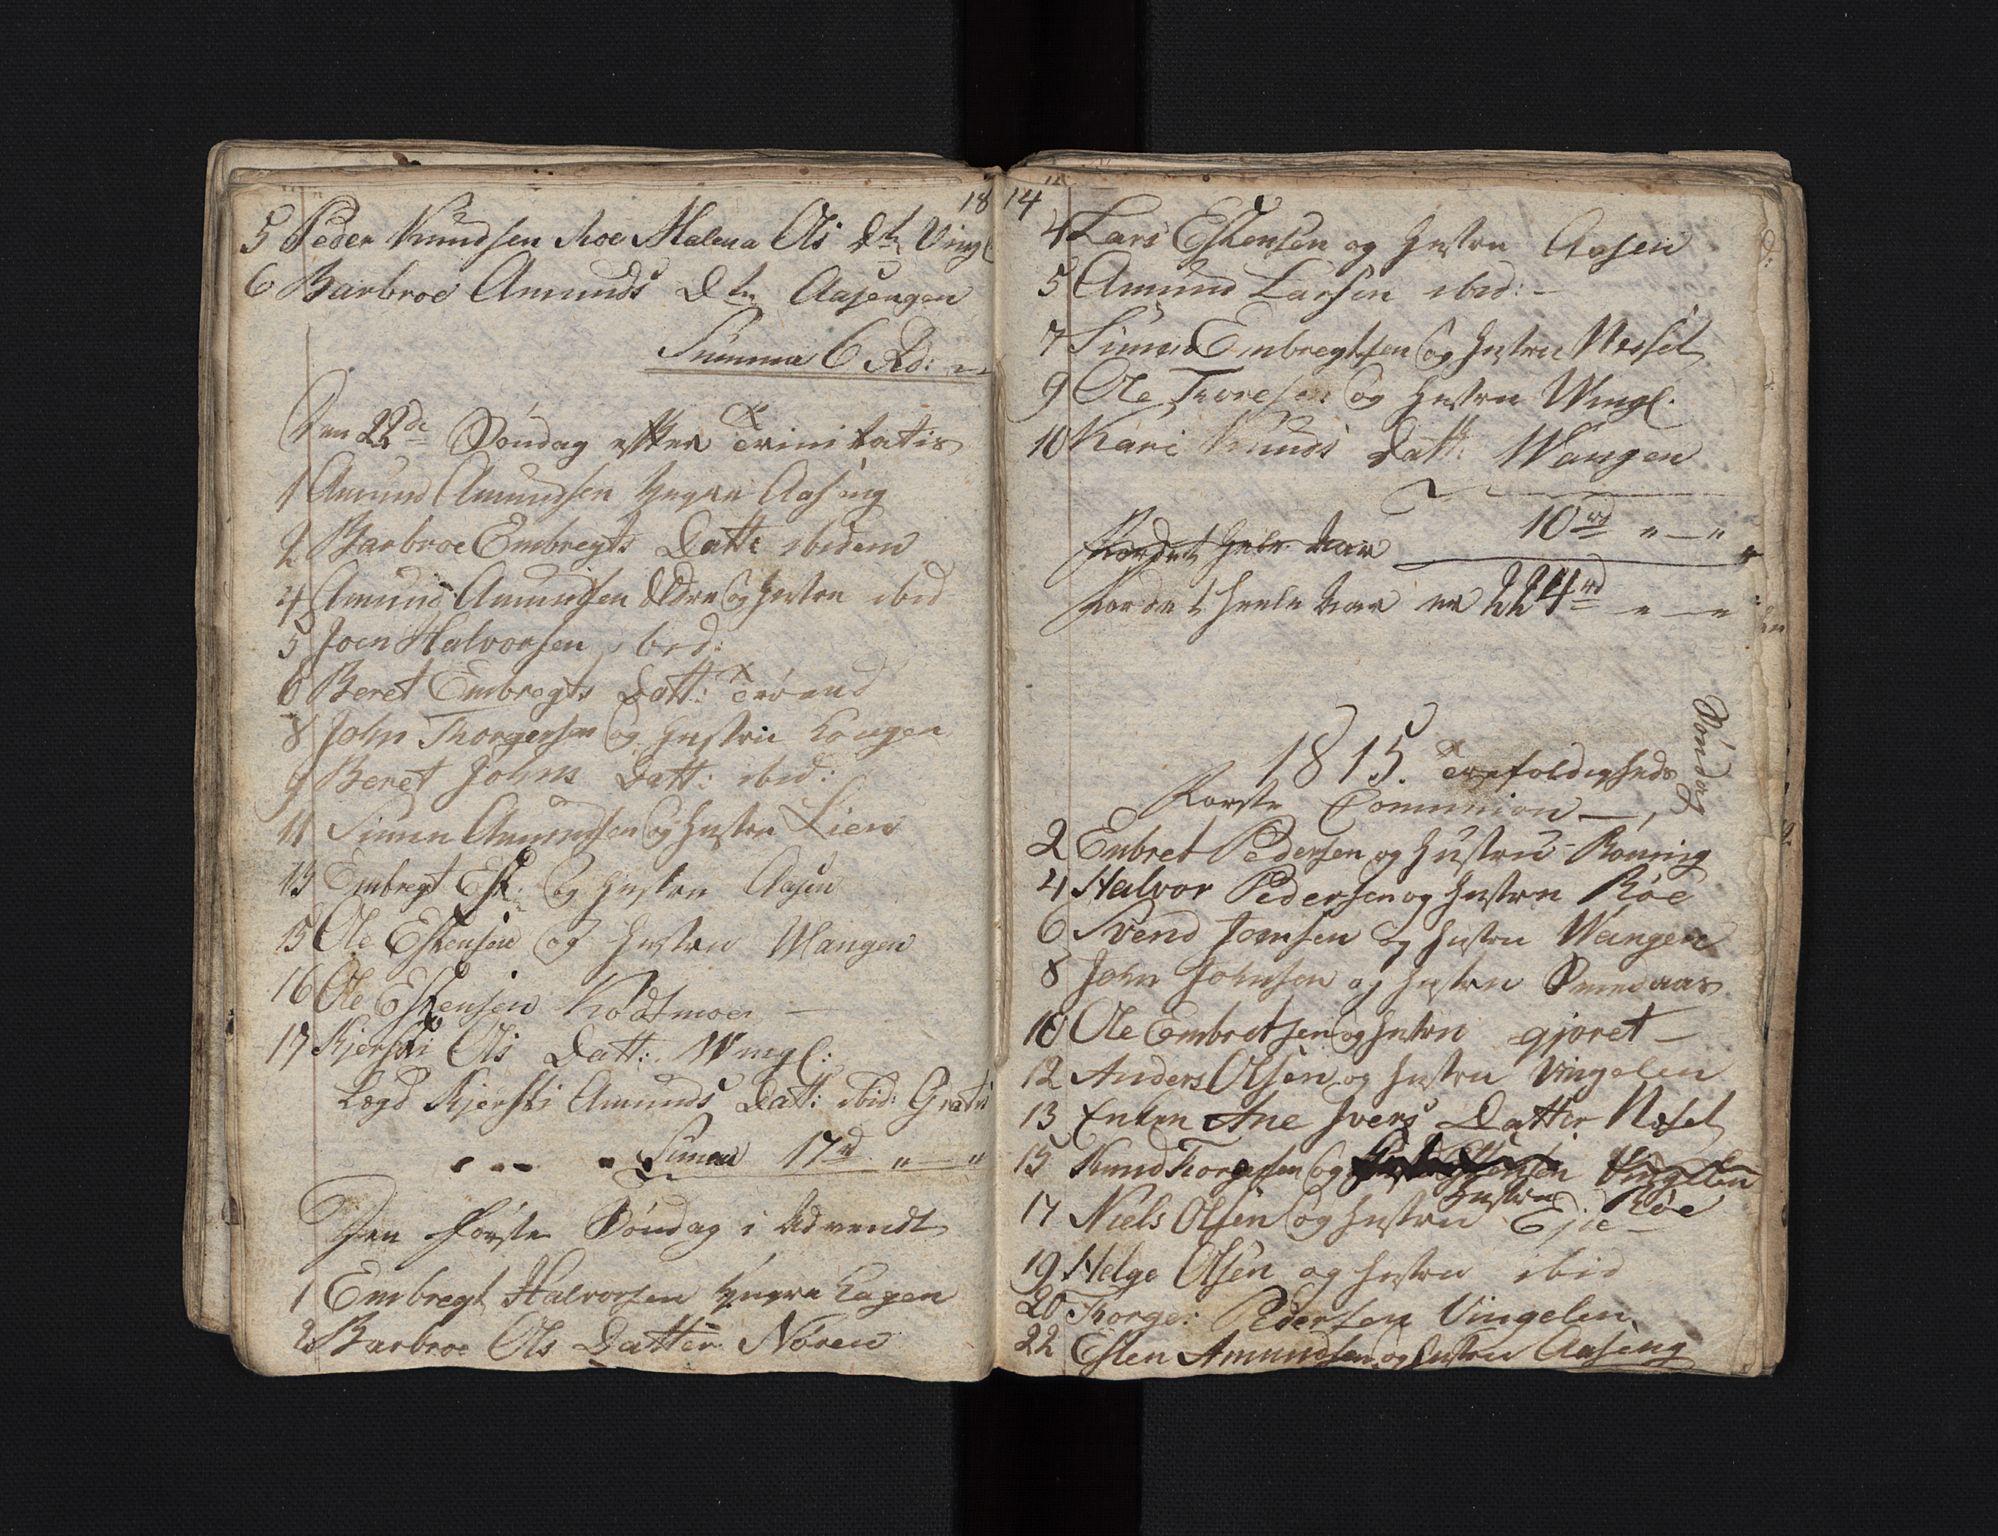 1814
5 Peder Knudsen Roe Malena Ols Dtr Vingl
6 Barbroe Amunds Dtr Aasengen
Summa 6 Rd:
Den 22de Söndag efter Trinitatis
1 Amund Amundsen Yngre Aaseng
2 Barbroe Embregts Datte ibidem
4 Amund Amundsen Eldre og Hustru ibid
5 Joen Halvorsen ibid:
6 Beret Embregts Datt: Tröend
8 John Thorgersen og Hustru Haugen
9 Beret Johns Datt: ibid:
11 Simen Amundsen og Hustru Lien
13 Embregt Esk: og Hustru Aasen
15 Ole Eskensen og Hustru Wangen
16 Ole Eskensen Ködtmoen
17 Kjersti Ols Datt: Wingl:
Lægd Kjersti Amunds Datt: ibid: Gratis
Suma 17rd „—„
Den förste Söndag i Advendt
1 Embregt Halvorsen Yngre Hagen
2 Barbroe Ols Datter Nören
4 Lars Eskensen og Hustru Aasen
5 Amund Larsen ibid:
7 Simen Embregtsen og Hustru Nessel
9 Ole Thoresen og Hustru Wingl:
10 Kari Knuds Datt: Wangen
10rd „—„
For det hele Aar
For det heele Aar er 224rd „—„
1815. Trefoldigheds Söndag
Förste Communion
2 Enbret Pedersen og Hustru Röning
4 Halvor Pedersen og Hustru Röe
6 Svend Joensen og Hustru Wangen
8 John Johnsen og Hustru Smedaas
10 Ole Embretsen og Hustru gjoret
12 Anders Olsen og Hustru Vingelen
13 Enken Ane Ivers Datter Nesset
15 Knud Thorgersen og Vingelen
Hustru Röe
17 Niels Olsen og Hustru Ejde
19 Helge Olsen og Hustru ibid
20 Thorge: Pedersen Vingelen
22 Esten Amundsen og Hustru Aaseng